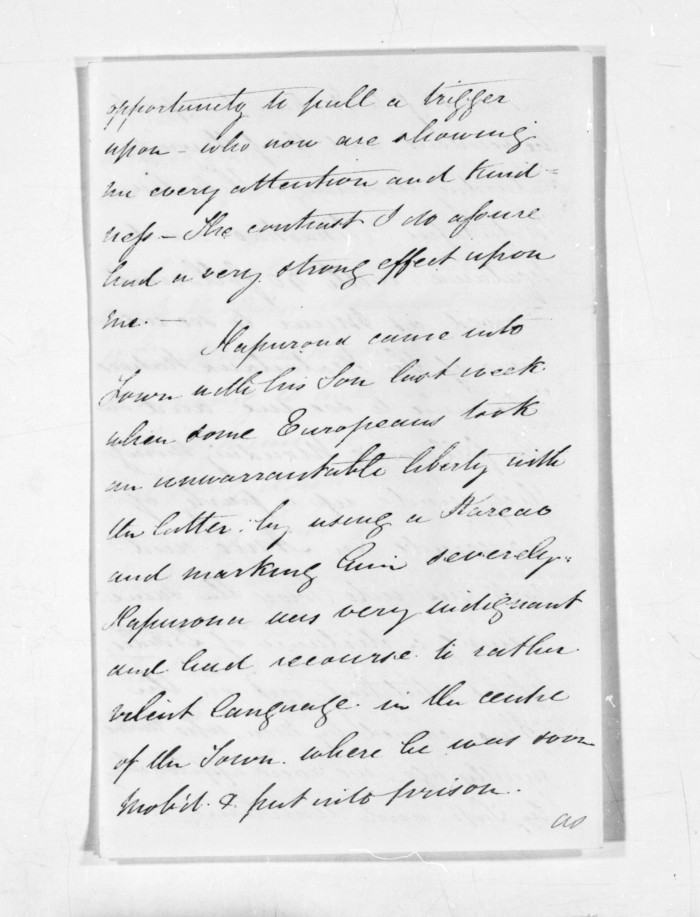 opportunity to pull a trigger
upon - who now are showing
me every attention and kind-
ness - The contrast I do assure
had a very strong effect upon
me. -
Hapurona came into
Town with his Son last week
when some Europeans took
an unwarrantable liberty with
the latter by using a Kareao
and marking him severely.
Hapurona was very indignant
and had recourse to rather
violent language in the centre
of the Town where he was soon
mob'd & put into prison.
as